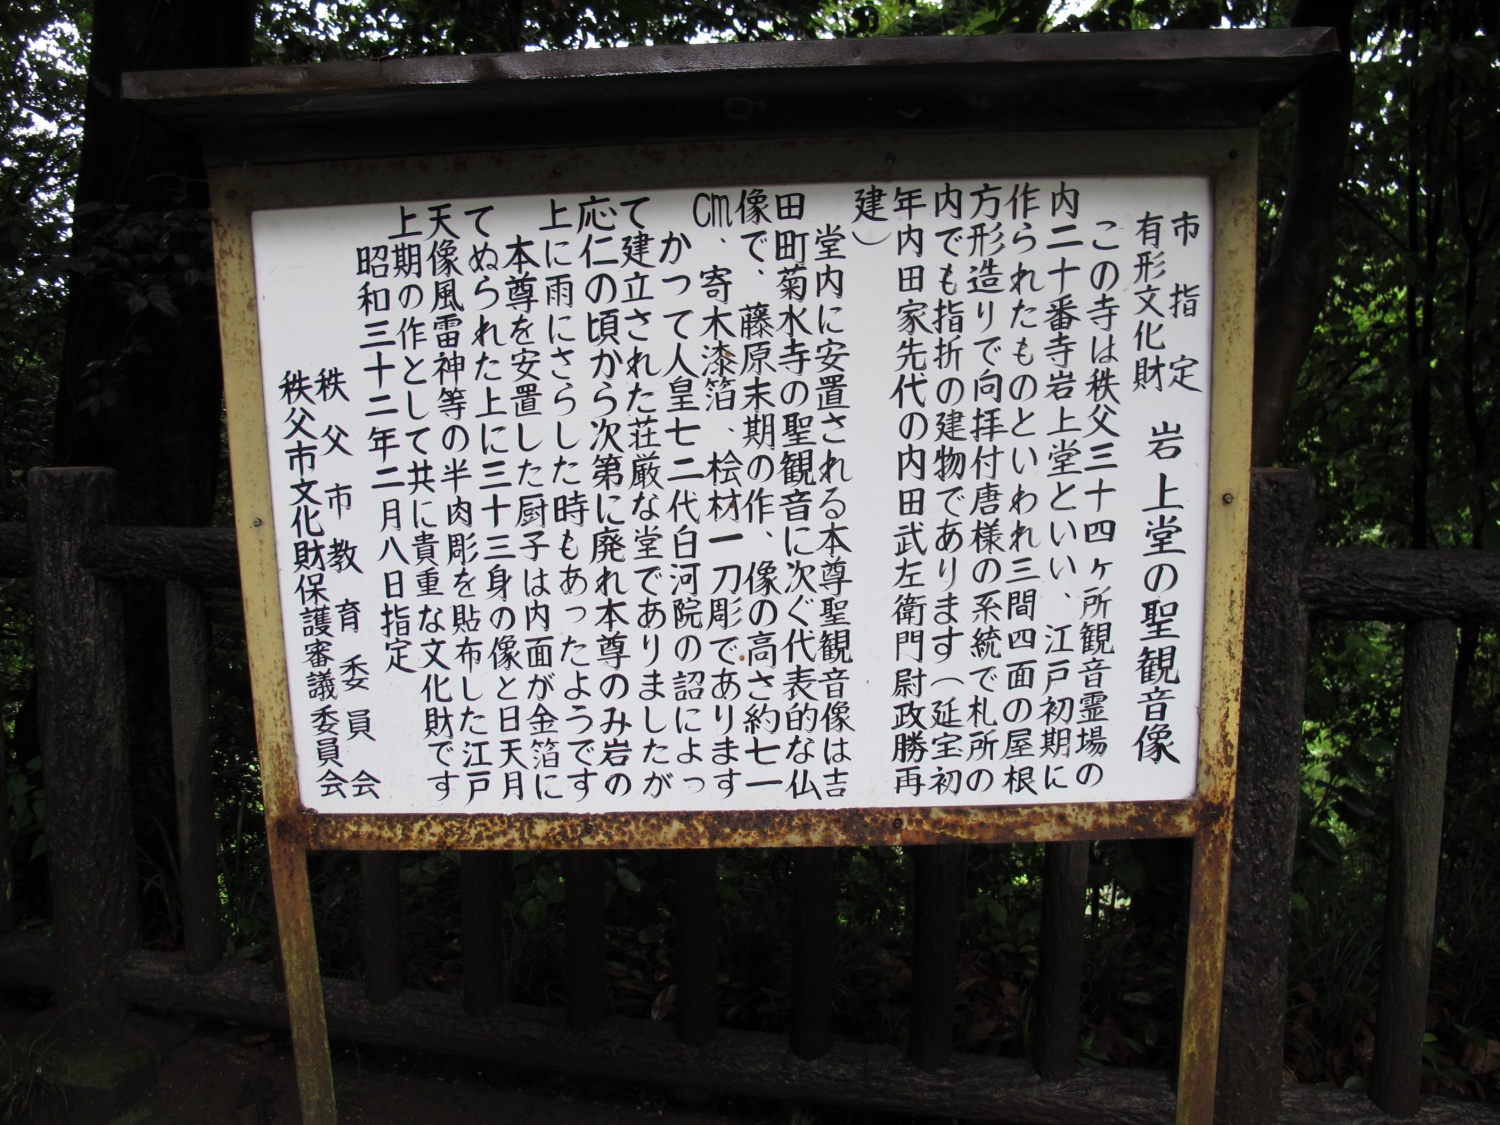 市指定
有形文化財
岩上堂の聖観音像
この寺は秩父三十四ヶ所観音霊場の
内二十番寺岩上堂といい、江戸初期に
作られたものといわれ三間四面の屋根
方形造りで向拝付唐様の系統で札所の
内でも指折の建物であります（延宝初
年内田家先代の内田武左衛門尉政勝再
建）
堂内に安置される本尊聖観音像は吉
田町菊水寺の聖観音に次ぐ代表的な仏
像で、藤原末期の作、像の高さ約七一
cm、寄木漆箔、桧材一刀彫であります
かつて人皇七二代白河院の詔によっ
て建立された荘厳な堂でありましたが
応仁の頃から次第に廃れ本尊のみ岩の
上に雨にさらした時もあったようです
本尊を安置した厨子は内面が金箔に
てぬられた上に三十三身の像と日天月
天像風雷神等の半肉彫を貼布した江戸
上期の作として共に貴重な文化財です
昭和三十二年二月八日指定
秩父市教育委員会
秩父市文化財保護審議委員会